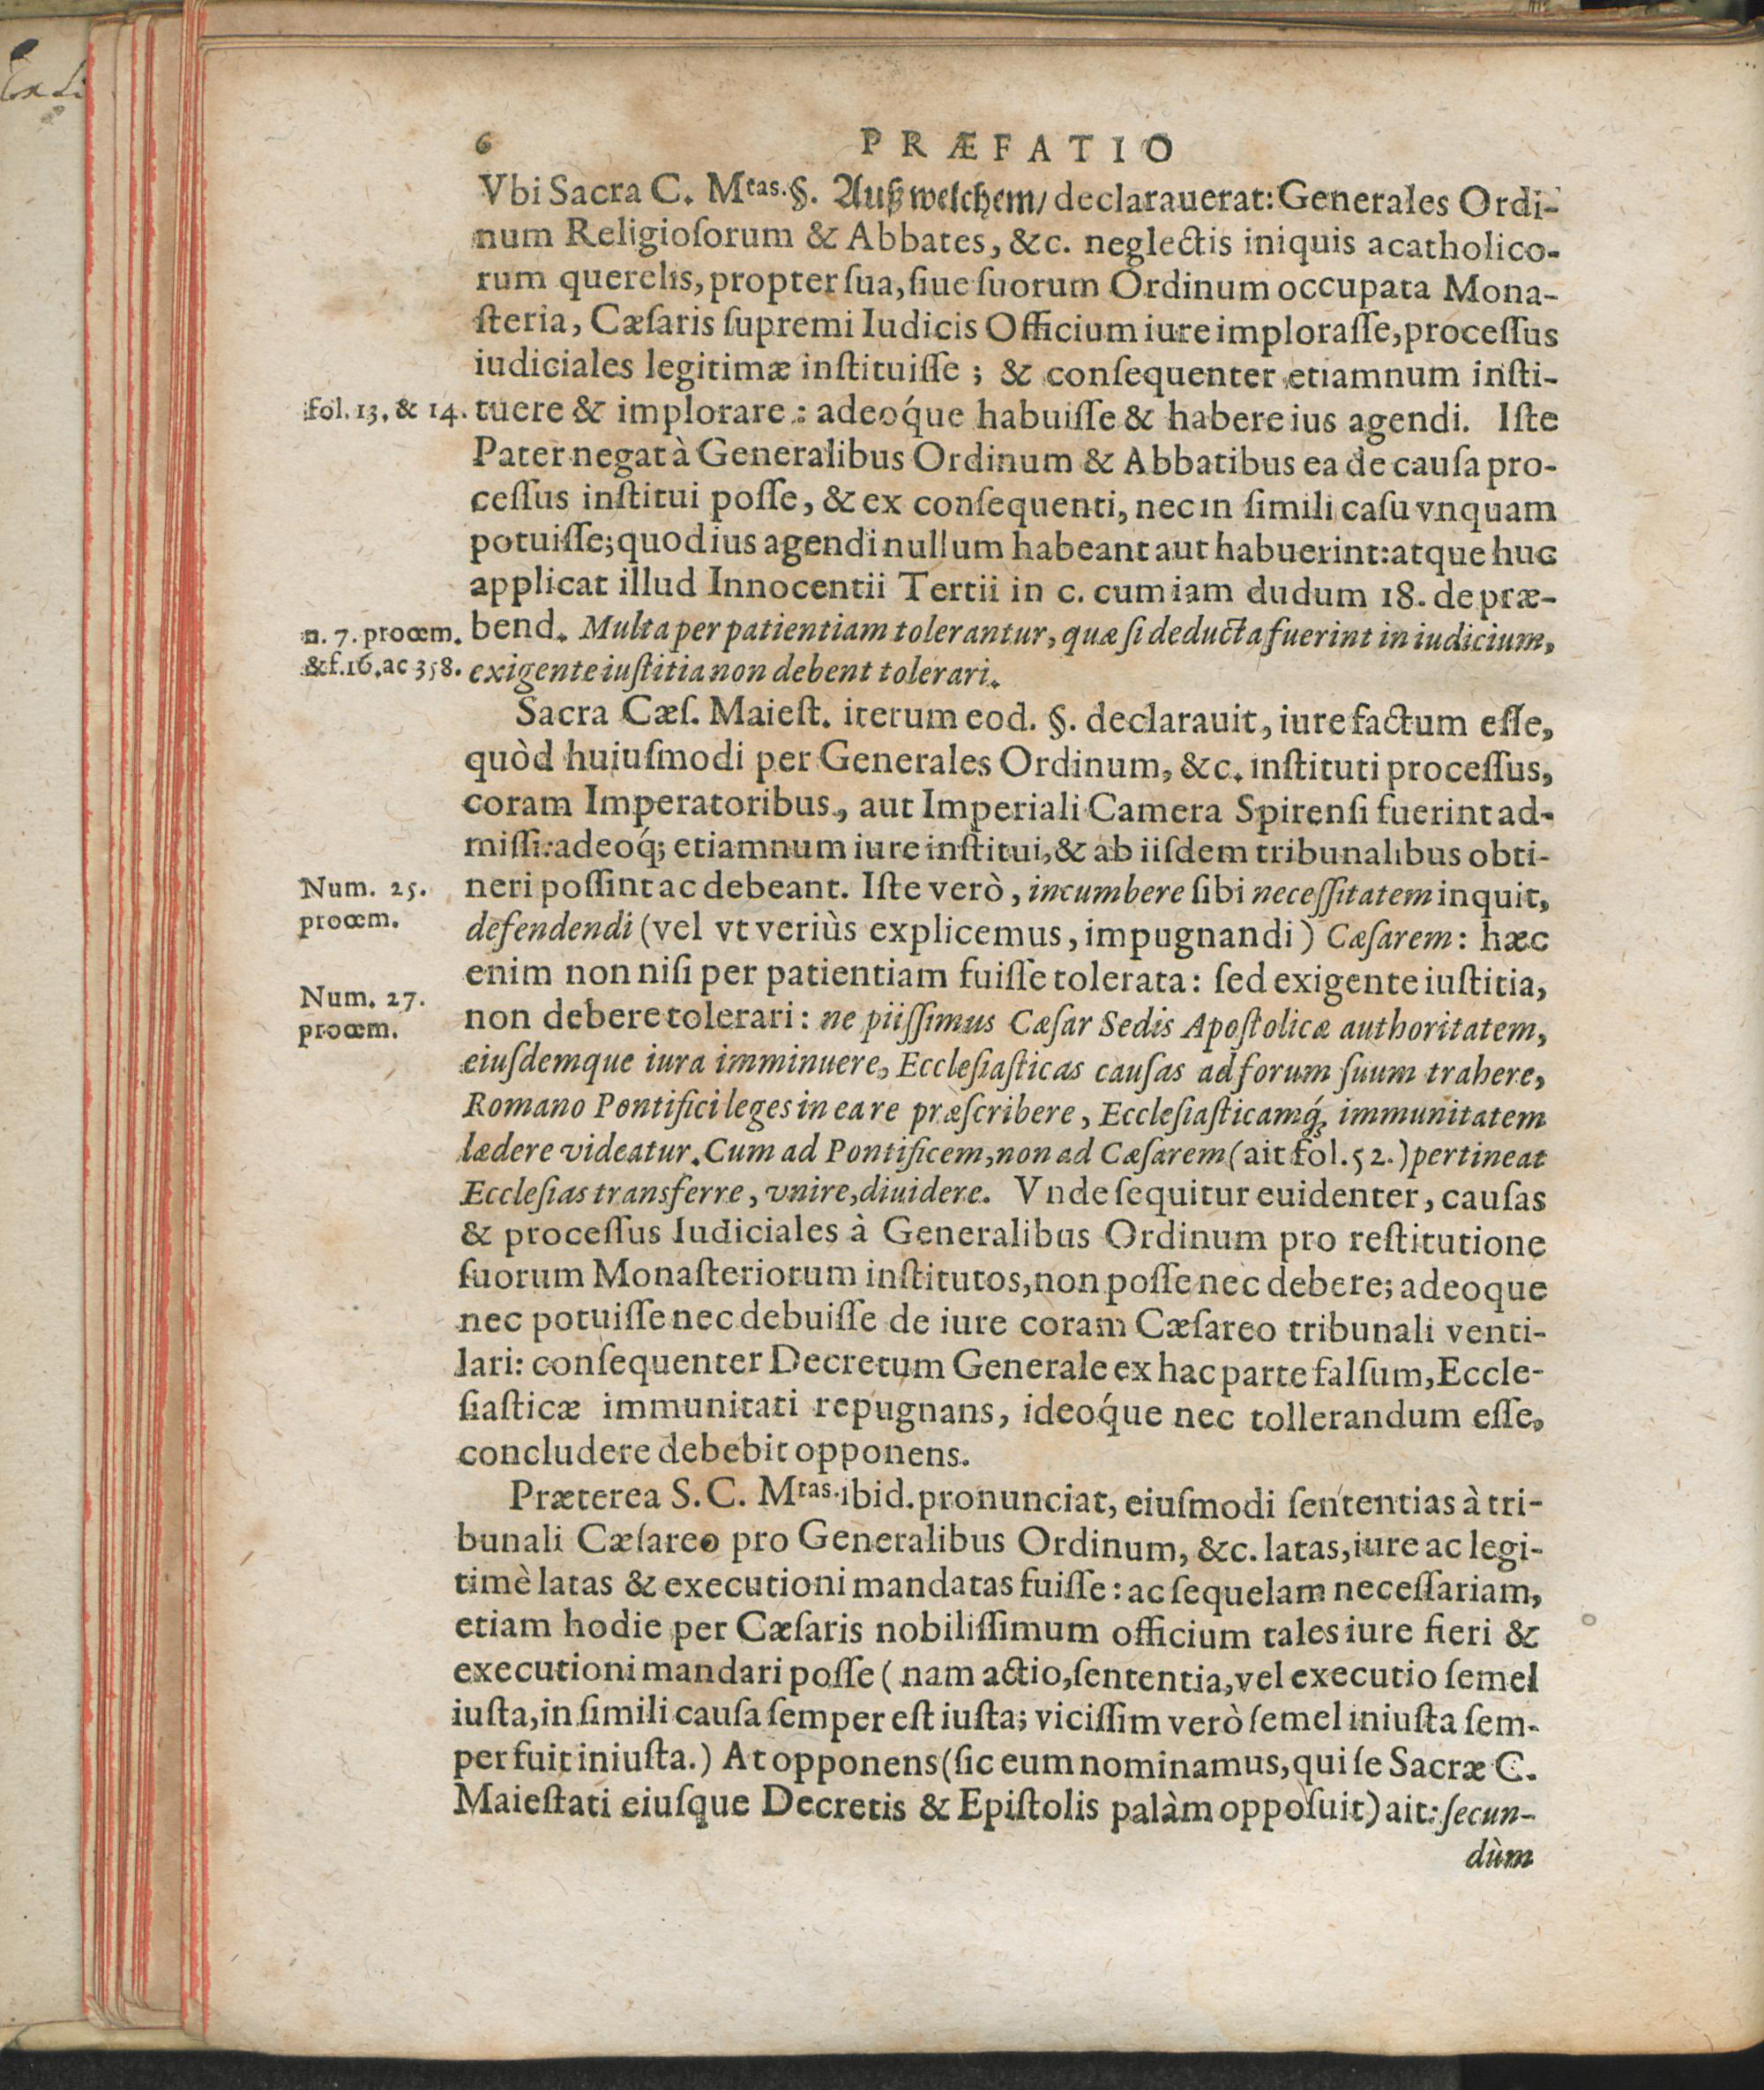 6 PRÆFATIO
Vbi Sacra C. Mtas. §. Außwelchem/ declarauerat: Generales Ordi-
num Religioſorum & Abbates, &c. neglectis iniquis acatholico-
rum querelis, propter ſua, ſiue ſuorum Ordinum occupata Mona-
ſteria, Cæſaris ſupremi Iudicis Officium iure imploraſſe, proceſſus
iudiciales legitimæ inſtituiſſe; & conſequenter etiamnum inſti-
fol. 13, & 14. tuere & implorare: adeoq́ue habuiſſe & habere ius agendi. Iſte
Pater negat à Generalibus Ordinum & Abbatibus ea de cauſa pro-
ceſſus inſtitui poſſe, & ex conſequenti, nec in ſimili caſu vnquam
potuiſſe; quod ius agendi nullum habeant aut habuerint: atque huc
applicat illud Innocentii Tertii in c. cum iam dudum 18. de præ-
n. 7. procœm. bend. Multa per patientiam tolerantur, quæ ſi deducta fuerint in iudicium,
& f. 16, ac 358. exigente iuſtitia non debent tolerari.
Sacra Cæſ. Maieſt. iterum eod. §. declarauit, iure factum eſſe,
quòd huiuſmodi per Generales Ordinum, &c. inſtituti proceſſus,
coram Imperatoribus, aut Imperiali Camera Spirenſi fuerint ad-
miſſi: adeoq́; etiamnum iure inſtitui, & ab iiſdem tribunalibus obti-
Num. 25. neri poſſint ac debeant. Iſte verò, incumbere ſibi neceſſitatem inquit,
procœm. defendendi (vel vt veriùs explicemus, impugnandi) Cæſarem: hæc
enim non niſi per patientiam fuiſſe tolerata: ſed exigente iuſtitia,
Num. 27. non debere tolerari: ne piiſſimus Cæſar Sedis Apoſtolicæ authoritatem,
procœm. eiuſdemque iura imminuere, Eccleſiaſticas cauſas ad forum ſuum trahere,
Romano Pontifici leges in ea re præſcribere, Eccleſiaſticamq́; immunitatem
lædere videatur. Cum ad Pontificem, non ad Cæſarem (ait fol. 52.) pertineat
Eccleſias transferre, vnire, diuidere. Vnde ſequitur euidenter, cauſas
& proceſſus Iudiciales à Generalibus Ordinum pro reſtitutione
ſuorum Monaſteriorum inſtitutos, non poſſe nec debere; adeoque
nec potuiſſe nec debuiſſe de iure coram Cæſareo tribunali venti-
lari: conſequenter Decretum Generale ex hac parte falſum, Eccle-
ſiaſticæ immunitati repugnans, ideoq́ue nec tollerandum eſſe,
concludere debebit opponens.
Præterea S. C. Mtas. ibid. pronunciat, eiuſmodi ſententias à tri-
bunali Cæſareo pro Generalibus Ordinum, &c. latas, iure ac legi-
timè latas & executioni mandatas fuiſſe: ac ſequelam neceſſariam,
etiam hodie per Cæſaris nobiliſſimum officium tales iure fieri &
executioni mandari poſſe (nam actio, ſententia, vel executio ſemel
iuſta, in ſimili cauſa ſemper eſt iuſta; viciſſim verò ſemel iniuſta ſem-
per fuit iniuſta.) At opponens (ſic eum nominamus, qui ſe Sacræ C.
Maieſtati eiuſque Decretis & Epiſtolis palàm oppoſuit) ait: ſecun-
dùm